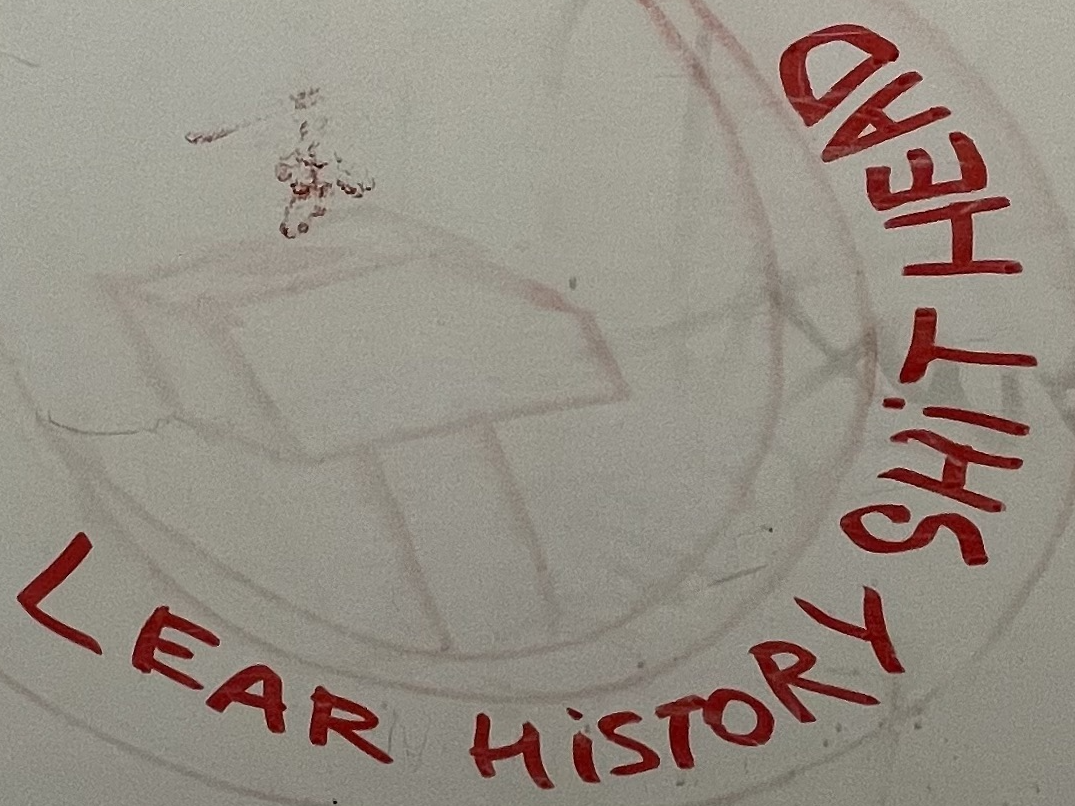 LEAR HiSTORY SHiT HEAD